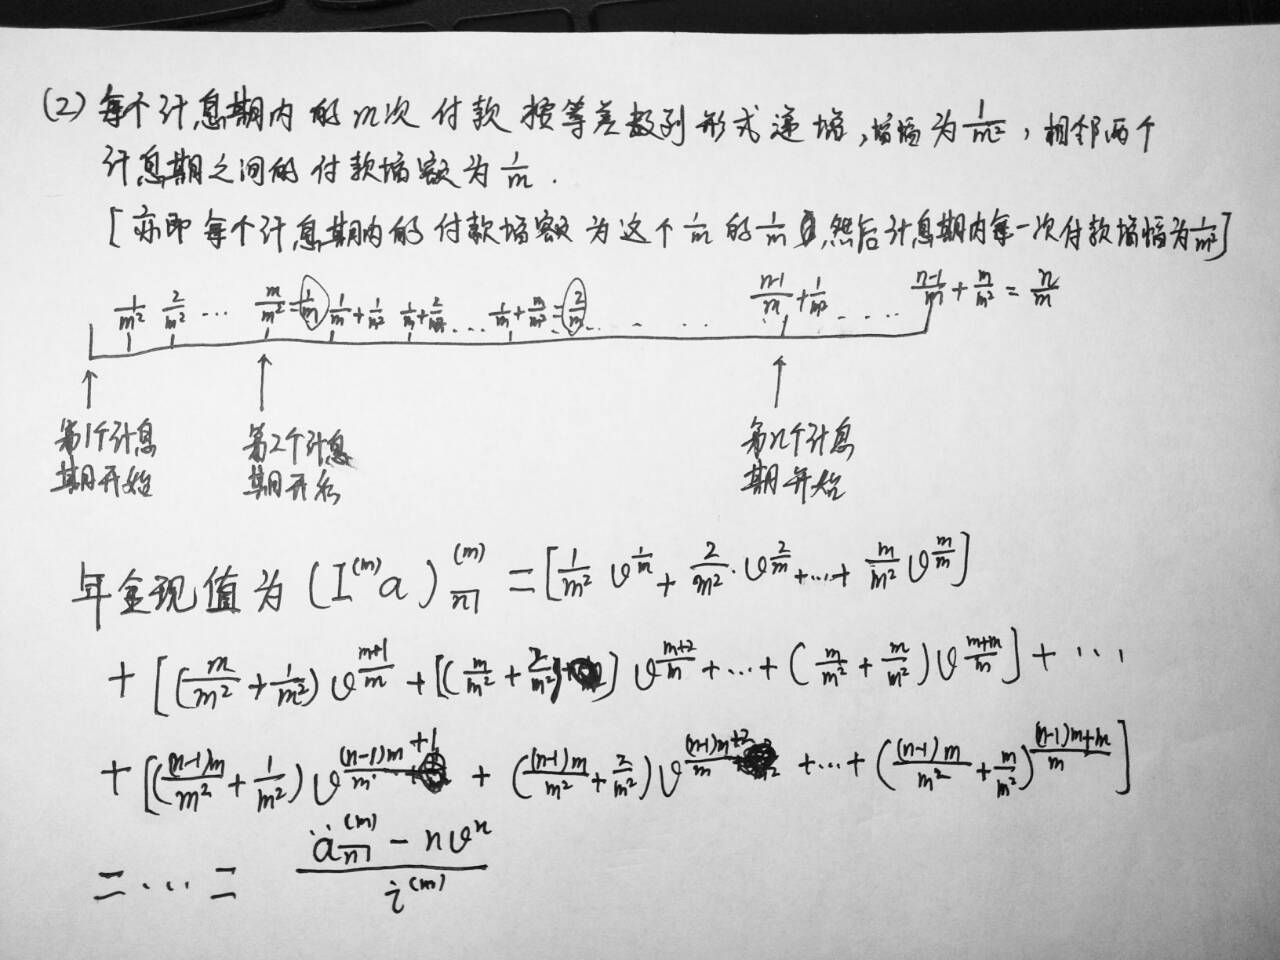 (2) 每个计息期内的m次付款按等差数列形式递增,增幅为1/m²,相邻两个
计息期之间的付款增额为1/m.
[亦即每个计息期内的付款增额为这个1/m的1/m,然后计息期内每一次付款增幅为1/m²]
1/m² 2/m² ... m/m²=1/m 1/m+1/m² 1/m+2/m² ... 1/m+m/m²=2/m ... (n-1)/m+1/m² .... (n-1)/m+m/m²=n/m
第1个计息期开始 第2个计息期开始 第n个计息期开始
年金现值为 (I^(m)a)_n̅|^(m) = [1/m² v^(1/m) + 2/m²·v^(2/m) +...+ m/m² v^(m/m)]
+ [(m/m²+1/m²) v^((m+1)/m) + [(m/m²+2/m²)] v^((m+2)/m) +...+ (m/m²+m/m²) v^((m+m)/m)] + ...
+ [((n-1)m/m²+1/m²) v^(((n-1)m+1)/m) + ((n-1)m/m²+2/m²) v^(((n-1)m+2)/m) +...+ ((n-1)m/m²+m/m²)^(((n-1)m+m)/m)]
= ... = (ä_n̅|^(m) - nv^n)/i^(m)